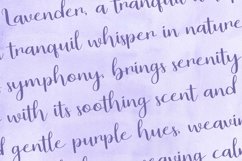 Lavender, a tranquil whisper
tranquil whisper in nature
symphony, brings serenity
with its soothing scent and
gentle purple hues, weaving
weaving calm